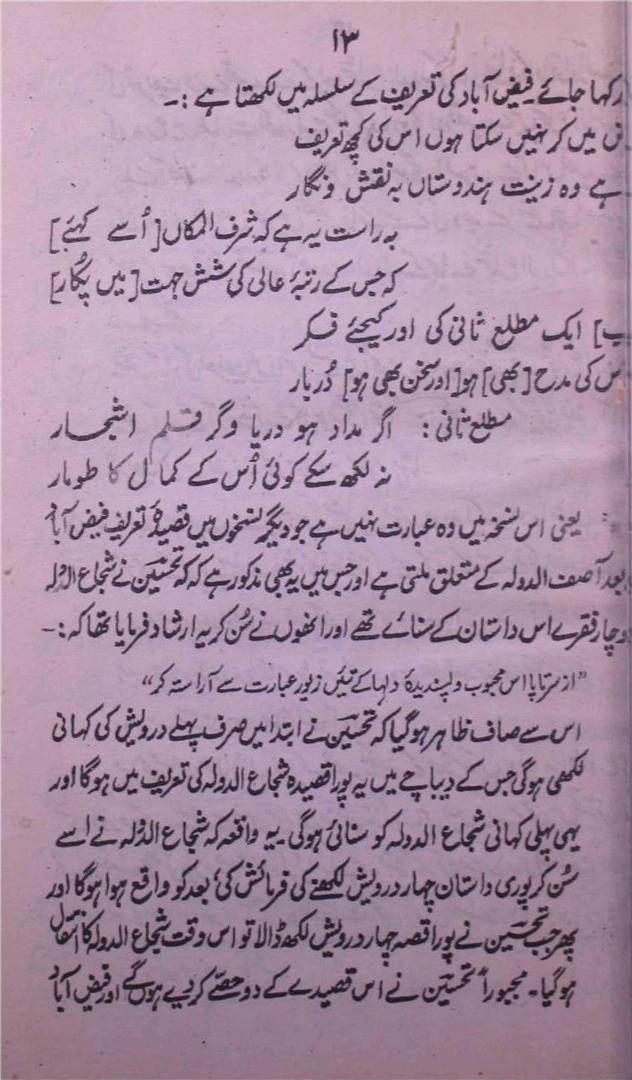 ۱۳
کہا جائے۔ فیض آباد کی تعریف کے سلسلہ میں لکھتا ہے :۔
میں کر نہیں سکتا ہوں اس کی کچھ تعریف
ہے وہ زینت ہندوستاں بہ نقش و نگار
بہ راست یہ ہے کہ شرف المکاں [اُسے کہئے]
کہ جس کے رتبۂ عالی کی شش جہت [میں پکار]
ب] ایک مطلع ثانی کی اور کیجئے فکر
س کی مدح [بھی] ہو [اور سخن بھی ہو] دُربار
مطلع ثانی : اگر مداد ہو دریا وگر قلم اشجار
نہ لکھ سکے کوئی اُس کے کمال کا طومار
یعنی اس نسخہ میں وہ عبارت نہیں ہے جو دیگر نسخوں میں قصیدۂ تعریف فیض آباد
بعد آصف الدولہ کے متعلق ملتی ہے اور جس میں یہ بھی مذکور ہے کہ کہ تحسین نے شجاع الدولہ
دو چار فقرے اس داستان کے سنائے تھے اور انھوں نے سُن کر یہ ارشاد فرمایا تھا کہ :۔
”از سر تا پا اس محبوب و پسندیدۂ دلہا کے تئیں زیور عبارت سے آراستہ کر“
اس سے صاف ظاہر ہو گیا کہ تحسین نے ابتدا میں صرف پہلے درویش کی کہانی
لکھی ہوگی جس کے دیباچے میں یہ پورا قصیدہ شجاع الدولہ کی تعریف میں ہوگا اور
یہی پہلی کہانی شجاع الدولہ کو سنائی ہوگی۔ یہ واقعہ کہ شجاع الدولہ نے اسے
سُن کر پوری داستان چہار درویش لکھنے کی فرمائش کی بعد کو واقع ہوا ہوگا اور
پھر جب تحسین نے پورا قصہ چہار درویش لکھ ڈالا تو اس وقت شجاع الدولہ کا انتقال
ہوگیا۔ مجبوراً تحسین نے اس قصیدے کے دو حصّے کر دیے ہوں گے اور فیض آباد